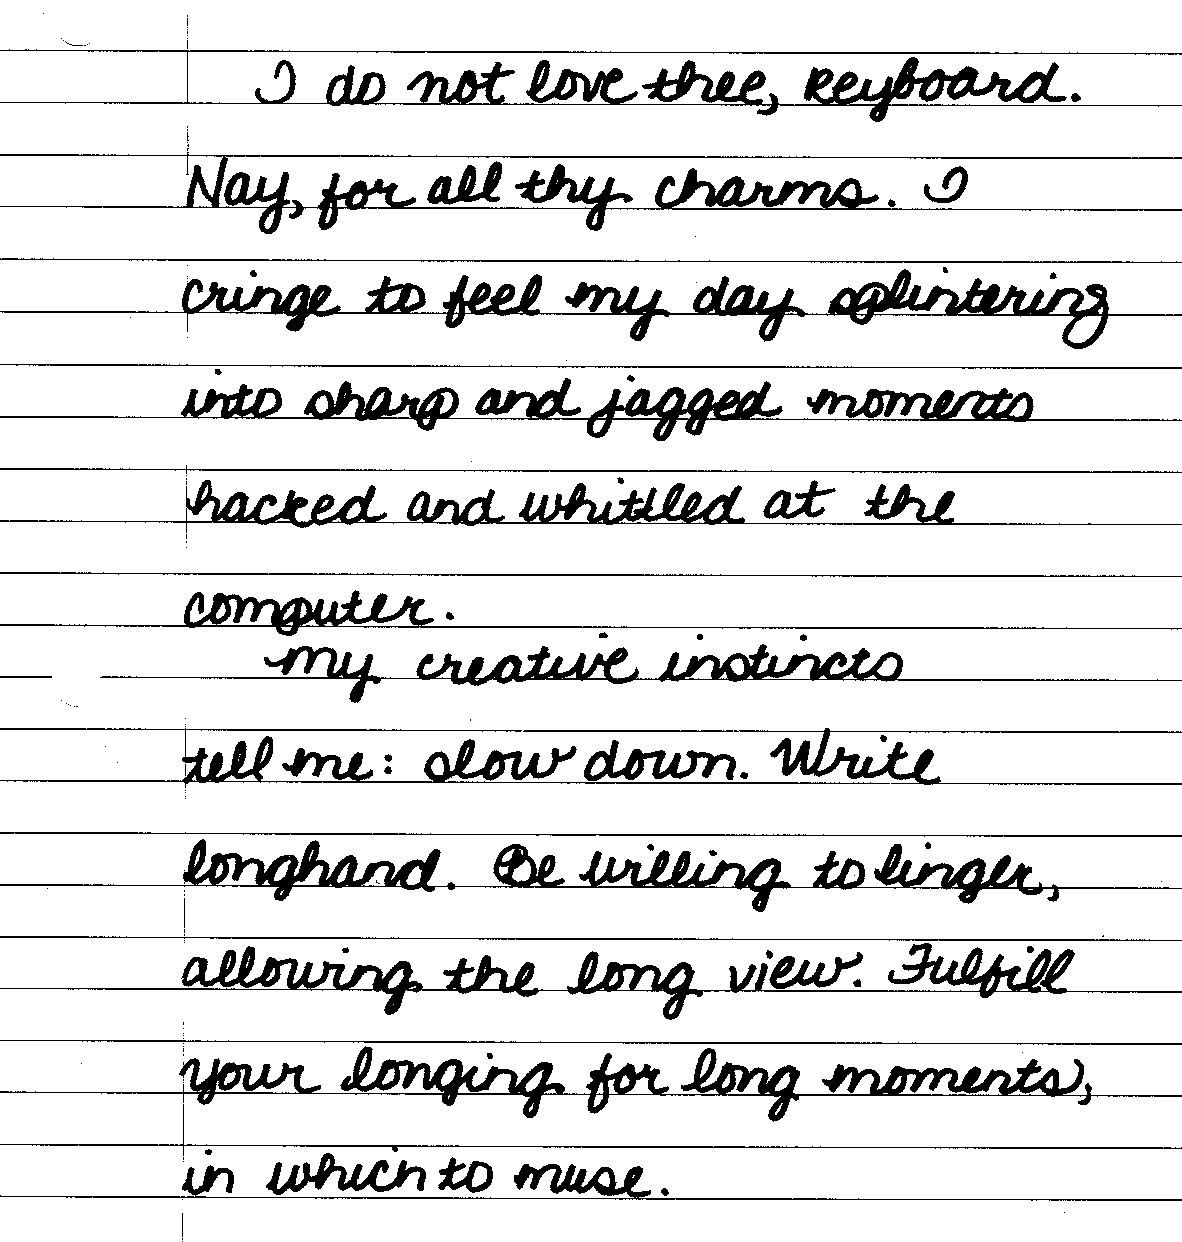 I do not love thee, keyboard.
Nay, for all thy charms. I
cringe to feel my day splintering
into sharp and jagged moments
hacked and whittled at the
computer.
My creative instincts
tell me: slow down. Write
longhand. Be willing to linger,
allowing the long view. Fulfill
your longing for long moments,
in which to muse.